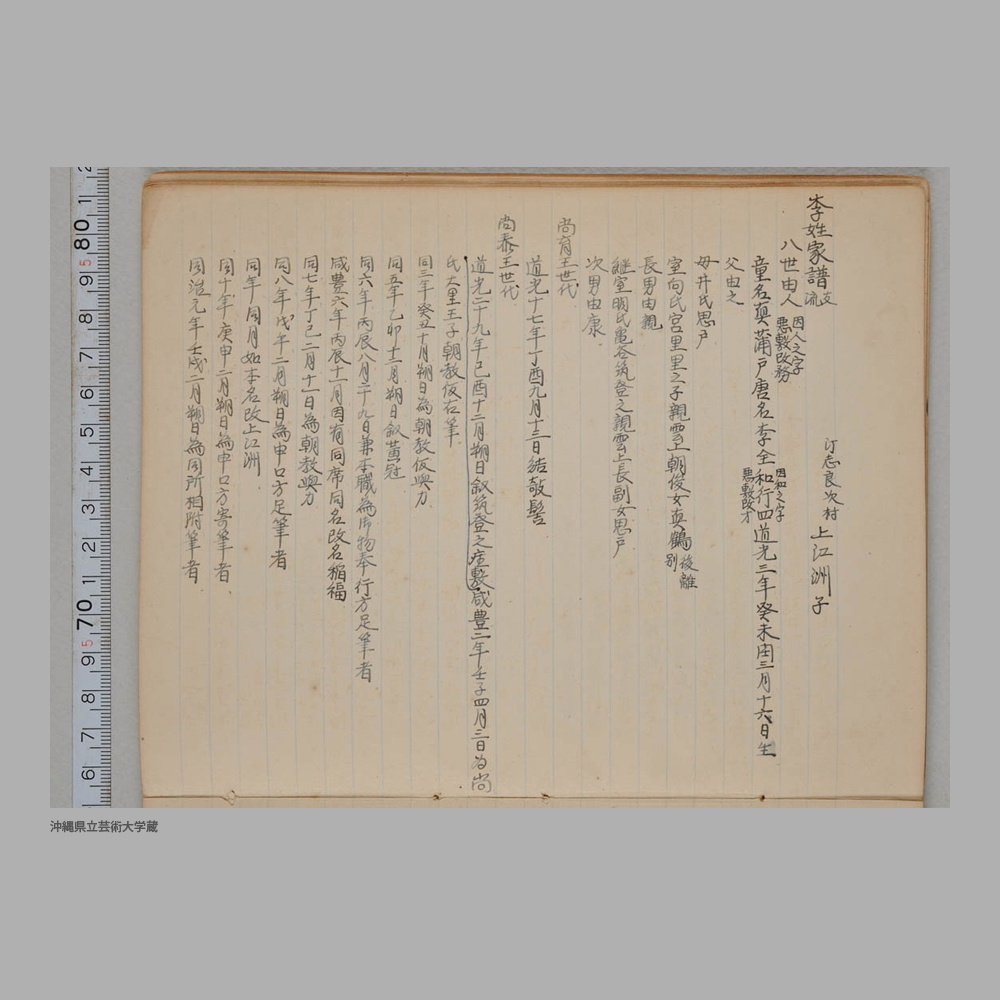 李姓家譜 支流
汀志良次村 上江洲子
八世由人 因人之字悪敷改務
童名真蒲戸唐名李全和行四道光三年癸未閏三月十六日生
因和之字悪敷改才
父由之
母井氏思戸
室向氏宮里里之子親雲上朝俊女真鶴 後離別
長男由親
継室周氏亀谷筑登之親雲上長副女思戸
次男由康
尚育王世代
道光十七年丁酉九月十三日結敧髻
尚泰王世代
道光二十九年己酉十二月朔日叙筑登之座敷咸豊二年壬子四月三日為尚
氏大里王子朝教仮右筆
同三年癸丑十月朔日為朝教仮與力
同五年乙卯十二月朔日叙黄冠
同六年丙辰八月二十九日兼本職為御物奉行方足筆者
咸豊六年丙辰十一月因有同席同名改名稲福
同七年丁巳二月十一日為朝教與力
同八年戊午二月朔日為申口方足筆者
同年同月如本名改上江洲
同十年庚申二月朔日為申口方寄筆者
同治元年壬戌二月朔日為同所相附筆者
沖縄県立芸術大学蔵